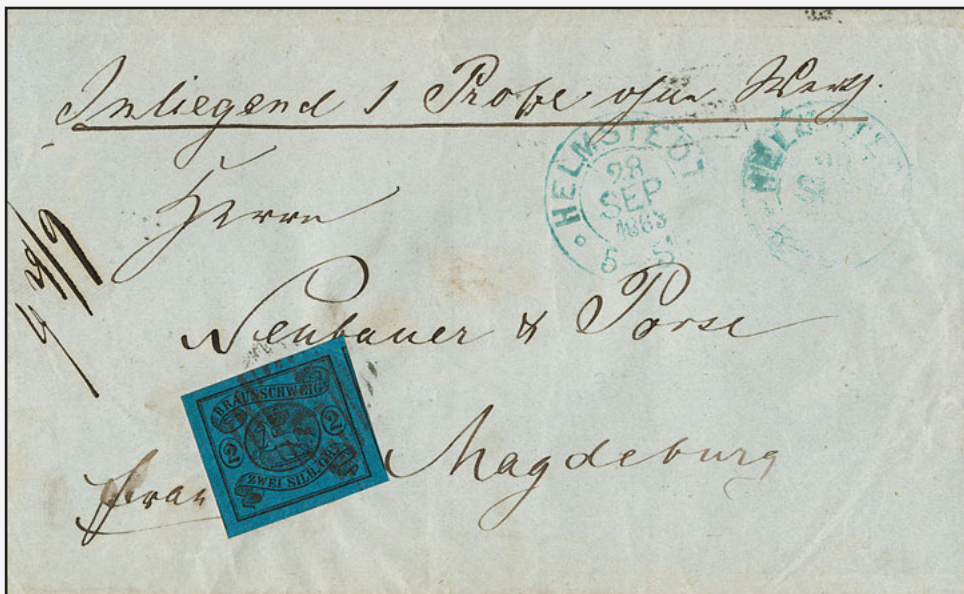 Inliegend 1 Probe ohne Werth.
HELMSTEDT
28
SEP
1863
5 - 5½
HELMSTEDT
Herrn
Neubauer & Porse
29/9
BRAUNSCHWEIG
2 2
ZWEI SILB.GR.
Magdeburg